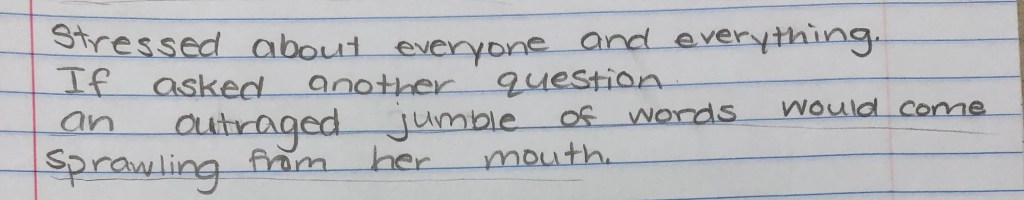 Stressed about everyone and everything.
If asked another question
an outraged jumble of words would come
sprawling from her mouth.